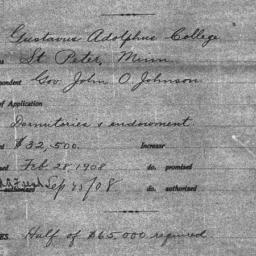 Gustavus Adolphus College
St Peter, Minn.
pondent Gov John O. Johnson
of Application
Dormitories & endowment
$32,500. Increase
Feb 28, 1908 do. promised
Sep 23/08 do. authorized
ES. Half of $65,000 required